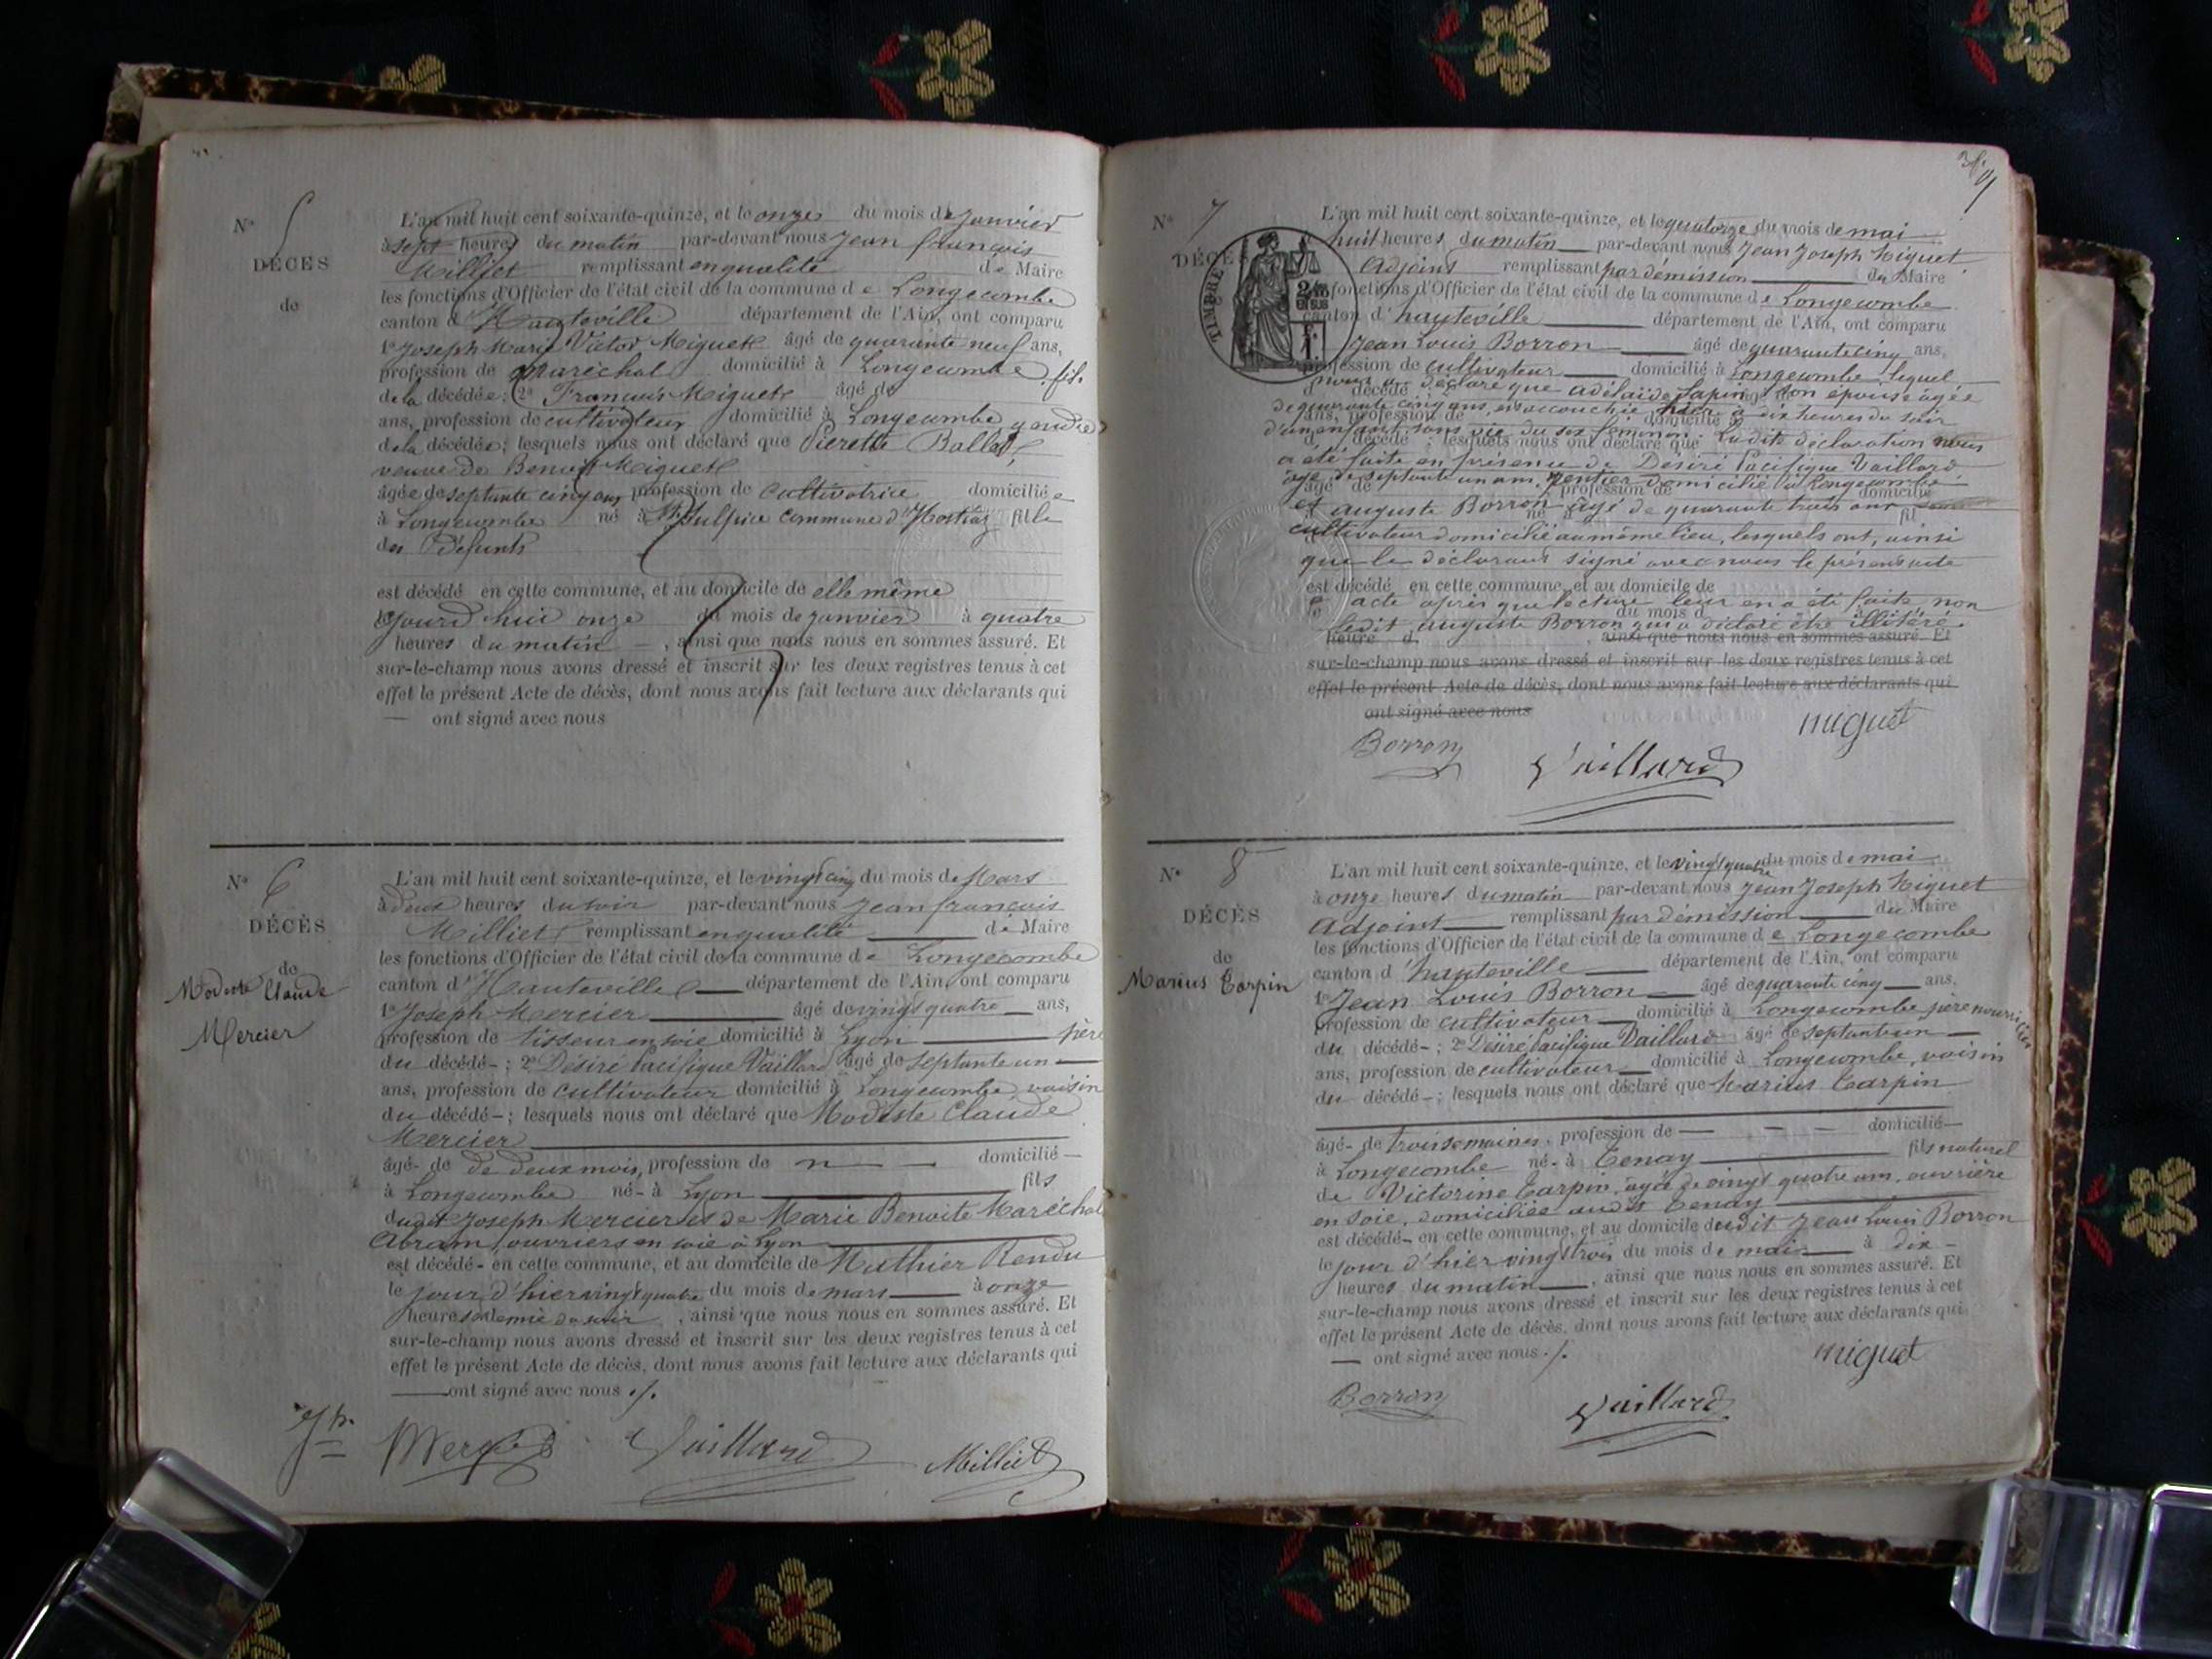 N° 5
DÉCÈS
de
L'an mil huit cent soixante-quinze, et le onze du mois de Janvier
à sept heures du matin par-devant nous Jean françois
Milliet remplissant en qualité de Maire
les fonctions d'Officier de l'état civil de la commune de Longecombe
canton d'Hauteville département de l'Ain, ont comparu
1° Joseph Marie Victor Miguet âgé de quarante neuf ans,
profession de Maréchal domicilié à Longecombe, fils
de la décédée; 2° François Miguet âgé de
ans, profession de cultivateur domicilié à Longecombe gendre
de la décédée; lesquels nous ont déclaré que Pierette Ballet,
veuve de Benoit Miguet
âgée de septante cinq ans, profession de cultivatrice domiciliée
à Longecombe né à St Sulpice commune d'Hostiaz fille
des Défunts
est décédé en cette commune, et au domicile de elle même
le jourd'hui onze du mois de janvier à quatre
heures du matin —, ainsi que nous nous en sommes assuré. Et
sur-le-champ nous avons dressé et inscrit sur les deux registres tenus à cet
effet le présent Acte de décès, dont nous avons fait lecture aux déclarants qui
— ont signé avec nous
N° 6
DÉCÈS
de
Modeste Claude
Mercier
L'an mil huit cent soixante-quinze, et le vingt cinq du mois de Mars
à deux heures du soir par-devant nous Jean françois
Milliet remplissant en qualité de Maire
les fonctions d'Officier de l'état civil de la commune de Longecombe
canton d'Hauteville département de l'Ain, ont comparu
1° Joseph Mercier âgé de vingt quatre ans,
profession de tisseur en soie domicilié à Lyon père
du décédé-; 2° Désiré Pacifique Vaillard âgé de septante un
ans, profession de cultivateur domicilié à Longecombe, voisin
du décédé-; lesquels nous ont déclaré que Modeste Claude
Mercier
âgé- de de deux mois, profession de domicilié—
à Longecombe né- à Lyon fils
dudit Joseph Mercier et de Marie Benoite Maréchal
Abram, ouvriers en soie à Lyon
est décédé- en cette commune, et au domicile de Muthier Rendu
le jour d'hier vingt quatre du mois de mars à onze
heures et demie du soir, ainsi que nous nous en sommes assuré. Et
sur-le-champ nous avons dressé et inscrit sur les deux registres tenus à cet
effet le présent Acte de décès, dont nous avons fait lecture aux déclarants qui
— ont signé avec nous ./.
Jh Mercier Vaillard Milliet
N° 7
DÉCÈS
TIMBRE
L'an mil huit cent soixante-quinze, et le quatorze du mois de mai
huit heures du matin par-devant nous Jean Joseph Miguet
Adjoint remplissant par démission du Maire
fonctions d'Officier de l'état civil de la commune de Longecombe
canton d'hauteville département de l'Ain, ont comparu
Jean Louis Borron âgé de quarante cinq ans,
profession de cultivateur domicilié à Longecombe, lequel
nous a déclaré que adélaïde Sapin, son épouse âgée
de quarante cinq ans, est accouchée hier à dix heures du soir
d'un enfant sans vie du sex féminin. Ladite déclaration nous
a été faite en présence de Désiré Pacifique Vaillard
âgé de septante un ans, rentier domicilié à Longecombe
et auguste Borron âgé de quarante trois ans
cultivateur domicilié au même lieu, lesquels ont, ainsi
que le déclarant signé avec nous le présent
est décédé en cette commune, et au domicile de
acte après que lecture leur en a été faite, non
ledit auguste Borron qui a déclaré être illitéré.
heure d , ainsi que nous nous en sommes assuré. Et
sur-le-champ nous avons dressé et inscrit sur les deux registres tenus à cet
effet le présent Acte de décès, dont nous avons fait lecture aux déclarants qui
ont signé avec nous
Borron Vaillard miguet
N° 8
DÉCÈS
de
Marius Carpin
L'an mil huit cent soixante-quinze, et le vingt quatre du mois de mai
à onze heures du matin par-devant nous Jean Joseph Miguet
Adjoint remplissant par démission du Maire
les fonctions d'Officier de l'état civil de la commune de Longecombe
canton d'hauteville département de l'Ain, ont comparu
1° Jean Louis Borron âgé de quarante cinq ans,
profession de cultivateur domicilié à Longecombe père nourricier
du décédé-; 2° Désiré Pacifique Vaillard âgé de septante un
ans, profession de cultivateur domicilié à Longecombe, voisin
du décédé-; lesquels nous ont déclaré que Marius Carpin
âgé- de trois semaines, profession de — — — domicilié—
à Longecombe né- à Tenay fils naturel
de Victorine Carpin, âgée de vingt quatre ans, ouvrière
en soie, domiciliée audit Tenay
est décédé- en cette commune, et au domicile dudit Jean Louis Borron
le jour d'hier vingt trois du mois de mai à dix
heures du matin, ainsi que nous nous en sommes assuré. Et
sur-le-champ nous avons dressé et inscrit sur les deux registres tenus à cet
effet le présent Acte de décès, dont nous avons fait lecture aux déclarants qui
— ont signé avec nous ./.
Borron Vaillard miguet